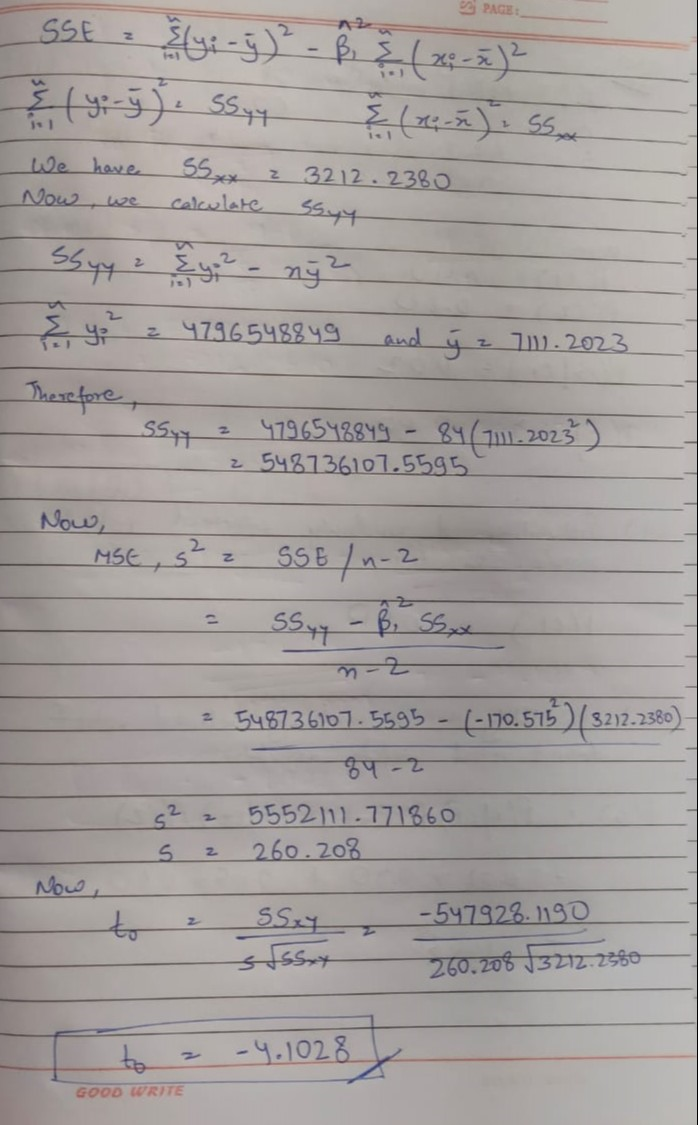 PAGE:
SSE = Σⁿᵢ₌₁(yᵢ - ȳ)² - β̂₁² Σⁿᵢ₌₁(xᵢ - x̄)²
Σⁿᵢ₌₁(yᵢ - ȳ)² = SSyy Σⁿᵢ₌₁(xᵢ - x̄)² = SSxx
We have SSxx = 3212.2380
Now, we calculate SSyy
SSyy = Σⁿᵢ₌₁ yᵢ² - nȳ²
Σⁿᵢ₌₁ yᵢ² = 4796548849 and ȳ = 7111.2023
Therefore,
SSyy = 4796548849 - 84(7111.2023²)
= 548736107.5595
Now,
MSE, s² = SSE / n-2
= SSyy - β̂₁² SSxx
n-2
= 548736107.5595 - (-170.575²)(3212.2380)
84-2
s² = 5552111.771860
s = 260.208
Now,
t₀ = SSxy / s√SSxy = -547928.1190 / 260.208√3212.2380
t₀ = -4.1028
GOOD WRITE